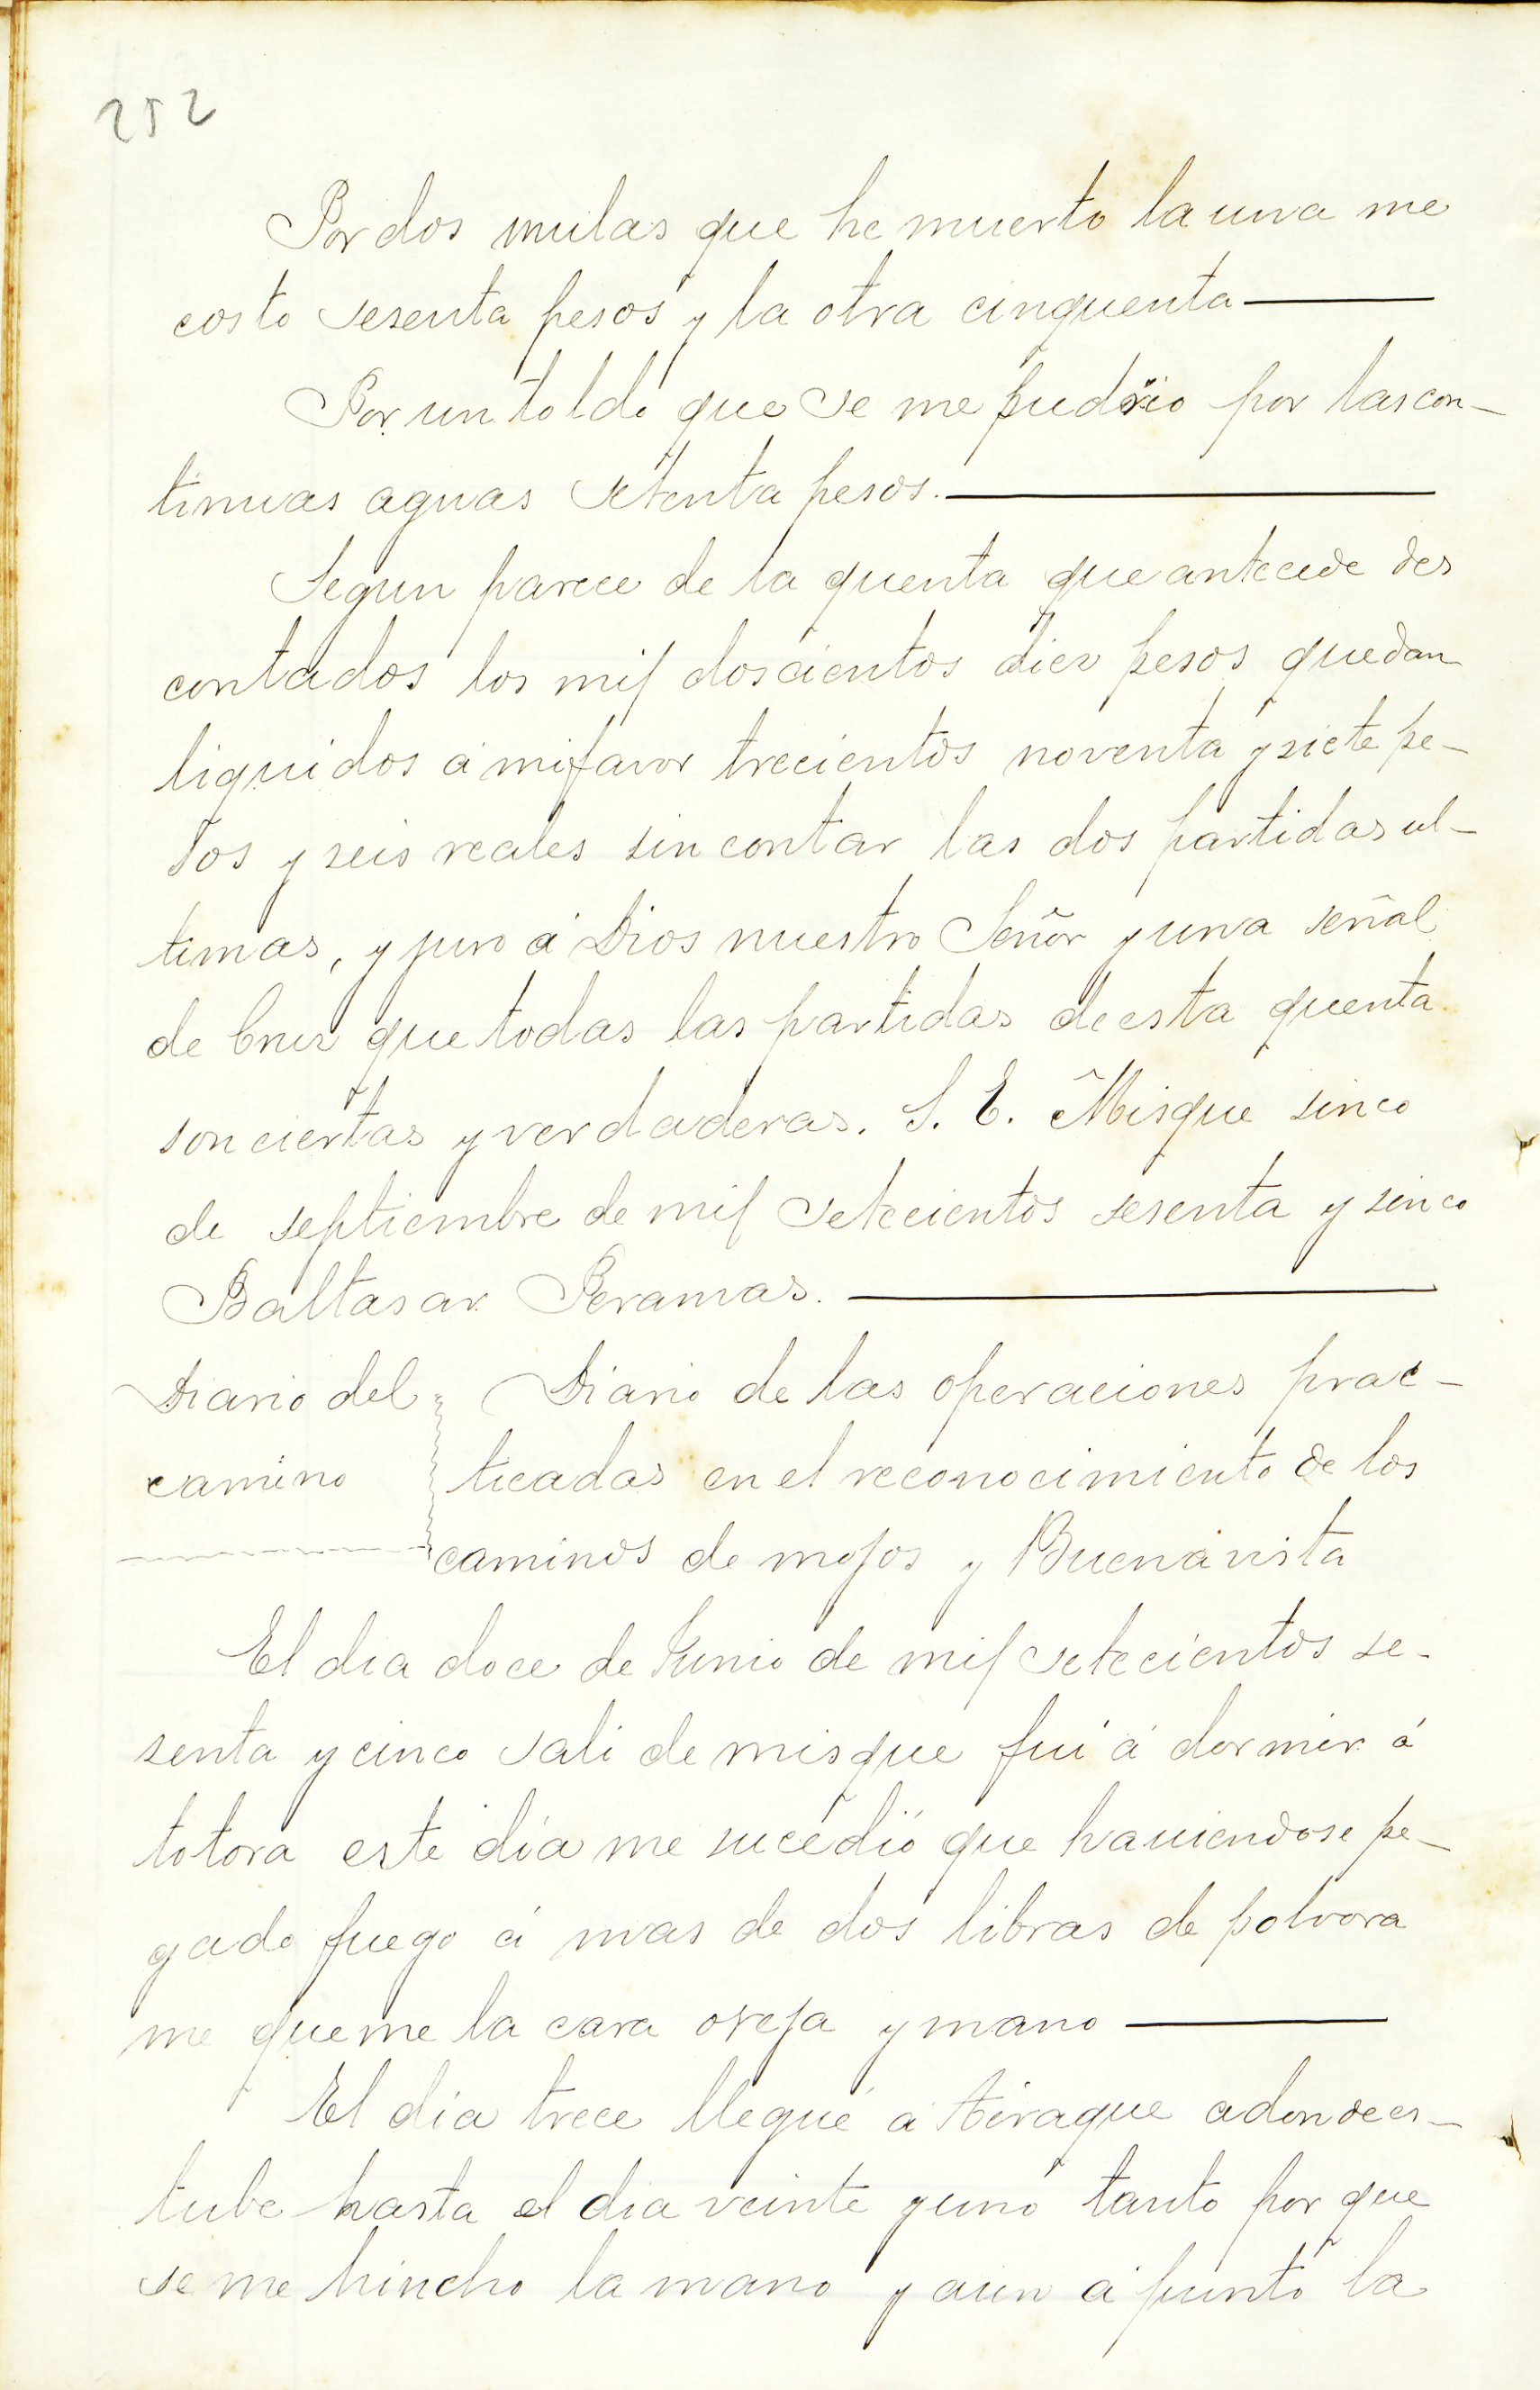 252
Por dos mulas que he muerto la una me
costo sesenta pesos y la otra cinquenta
Por un toldo que se me pudrio por las con-
tinuas aguas setenta pesos.
Segun parece de la quenta que antecede des
contados los mil doscientos diez pesos quedan
liquidos á mi favor trecientos noventa y siete pe-
sos y seis reales sin contar las dos partidas ul-
timas, y juro á Dios nuestro Señor y una señal
de Cruz que todas las partidas de esta quenta
son ciertas y verdaderas. S. E. Misque sinco
de septiembre de mil setecientos sesenta y sinco
Baltasar Peramas.
Diario del
camino
Diario de las operaciones prac-
ticadas en el reconocimiento de los
caminos de mojos y Buenavista
El dia doce de Junio de mil setecientos se-
senta y cinco sali de misque fui á dormir á
totora este dia me sucedió que haviendose pe-
gado fuego á mas de dos libras de polvora
me queme la cara oreja y mano
El dia trece llegué á tiraque adonde es-
tube hasta el dia veinte y uno tanto por que
se me hincho la mano y aun á punto la